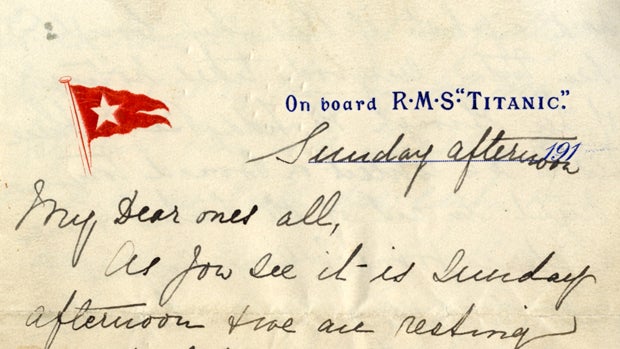 On board R·M·S "TITANIC."
191
Sunday afternoon
My Dear ones all,
As you see it is Sunday
afternoon & we are resting